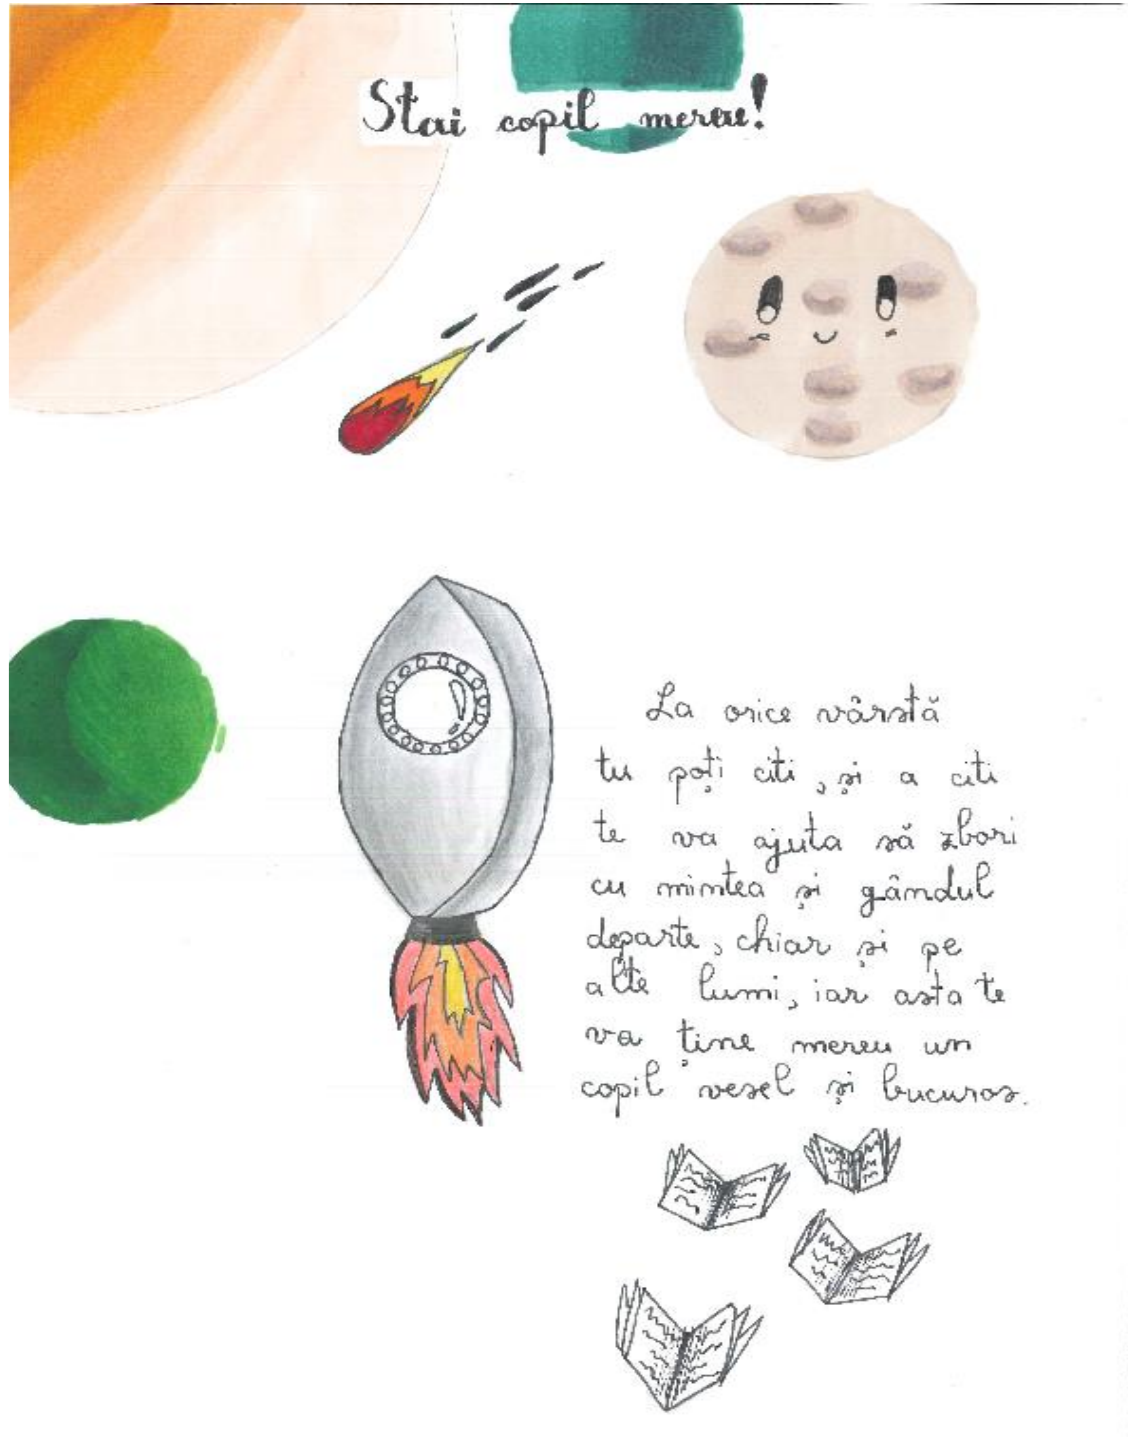 Stai copil mereu!
La orice vârstă
tu poți citi, și a citi
te va ajuta să zbori
cu mintea și gândul
departe, chiar și pe
alte lumi, iar asta te
va ține mereu un
copil vesel și bucuros.